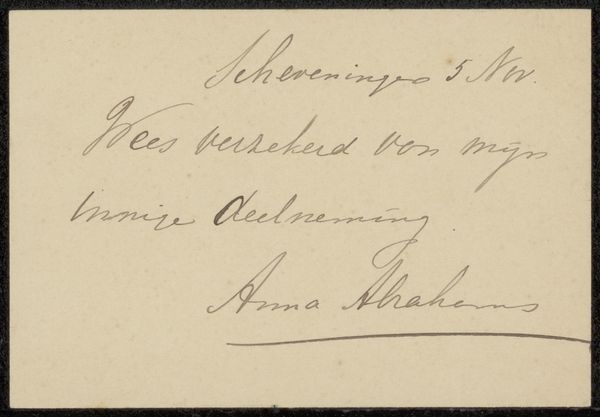 Scheveningen 5 Nov.
Wees verzekerd van mijn
innige deelneming.
Anna Abrahams